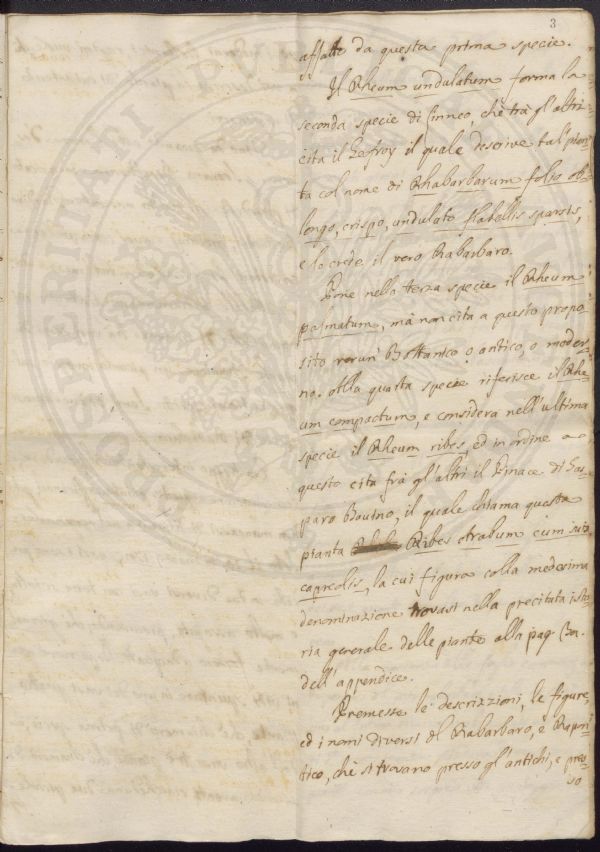 3
affatto da questa prima specie.
Il Rheum undulatum forma la
seconda specie di Linneo, che trà gl'altri
cita il Gefroy il quale descrive tal pian
ta col nome di Rhabarbarum folio ob-
longo, crispo, undulato flabellis sparsis,
e lo crede il vero Rabarbaro.
Pone nella terza specie il Rheum
palmatum, mà non cita a questo propo
sito verun' Bottanico o antico, o moder
no. Alla quarta specie riferisce il Rhe
um compactum, e considera nell'ultima
specie il Rheum ribes, ed in ordine a
questo cita frà gl'altri il Pinace di Gas
paro Bavino, il quale chiama questa
pianta Ribes Arabum cum suis
capreolis, la cui figura colla medesima
denominazione trovasi nella precitata isto
ria generale delle piante alla pag.
dell'appendice.
Premesse le descrizzioni, le figure,
ed i nomi diversi del Rabarbaro, e Rapon
tico, chè si trovano presso gl'antichi, e pres-
so
PROSPERITATI PUBLICAE